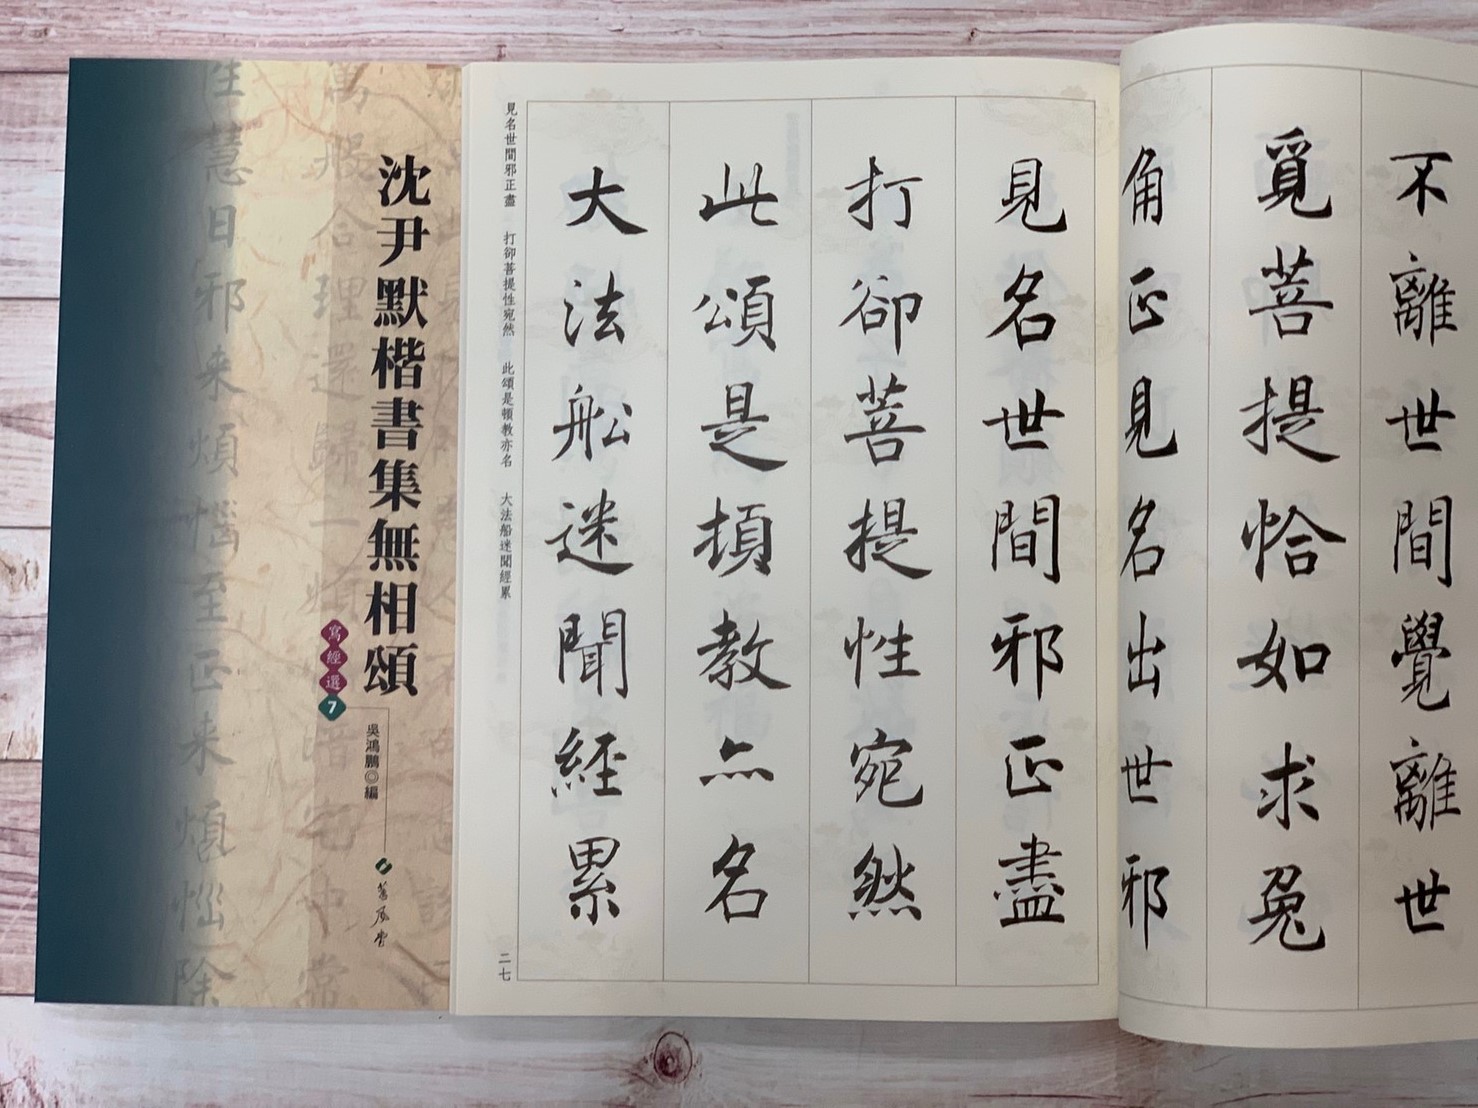 不離世間覺離世
覓菩提恰如求兔
角正見名出世邪
見名世間邪正盡
打卻菩提性宛然
此頌是頓教亦名
大法舩迷聞經累
見名世間邪正盡 打卻菩提性宛然 此頌是頓教亦名 大法船迷聞經累
二七
沈尹默楷書集無相頌
寫經選7
吳鴻鵬◎編
蕙風堂
性慧日邪来煩惱至正来煩惱除